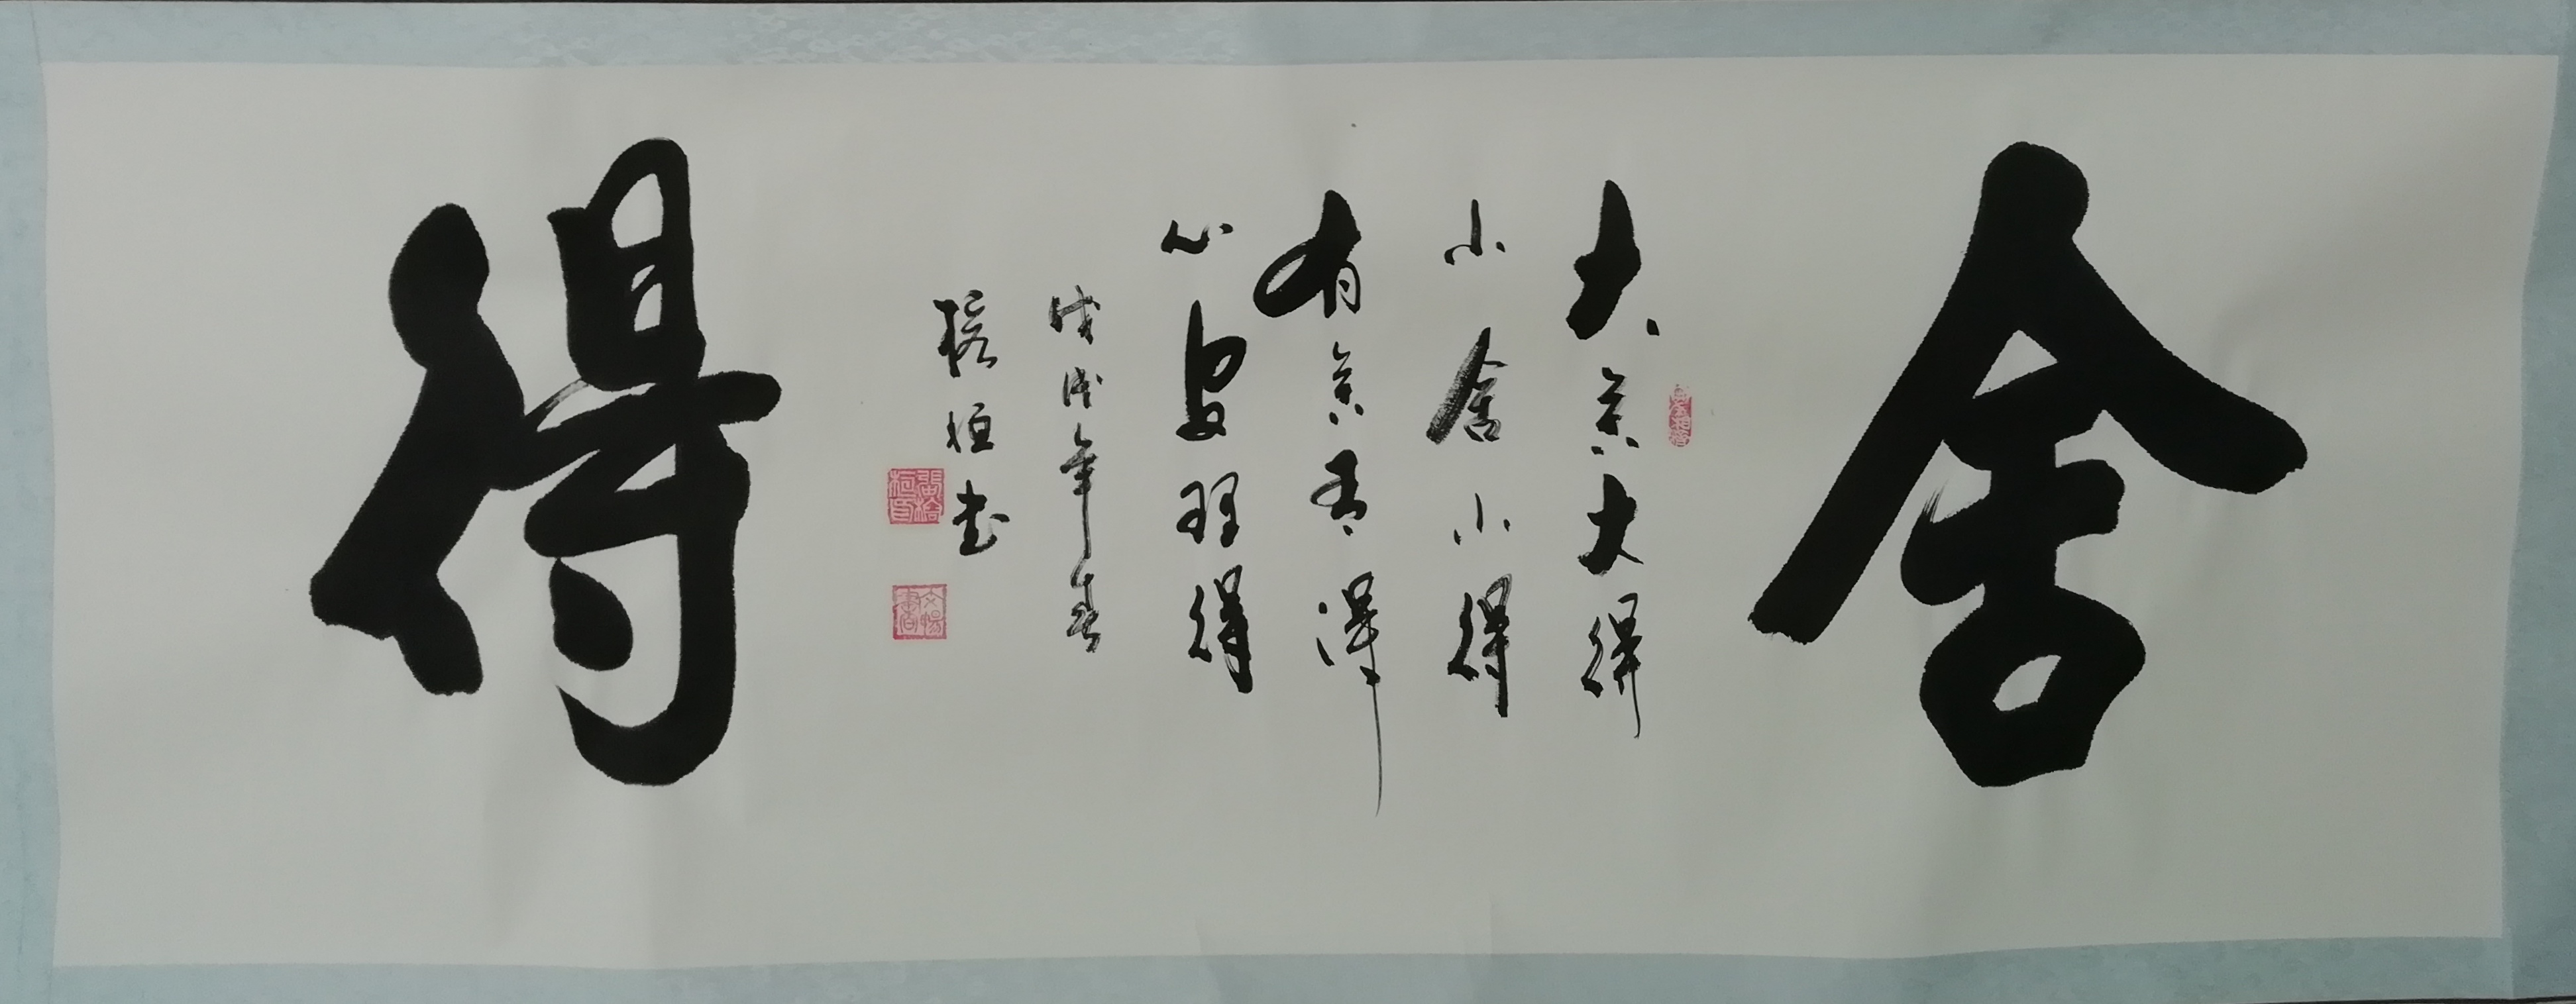 舍
大舍大得
小舍小得
有舍有得
心安理得
戊戌年春
恒書
得